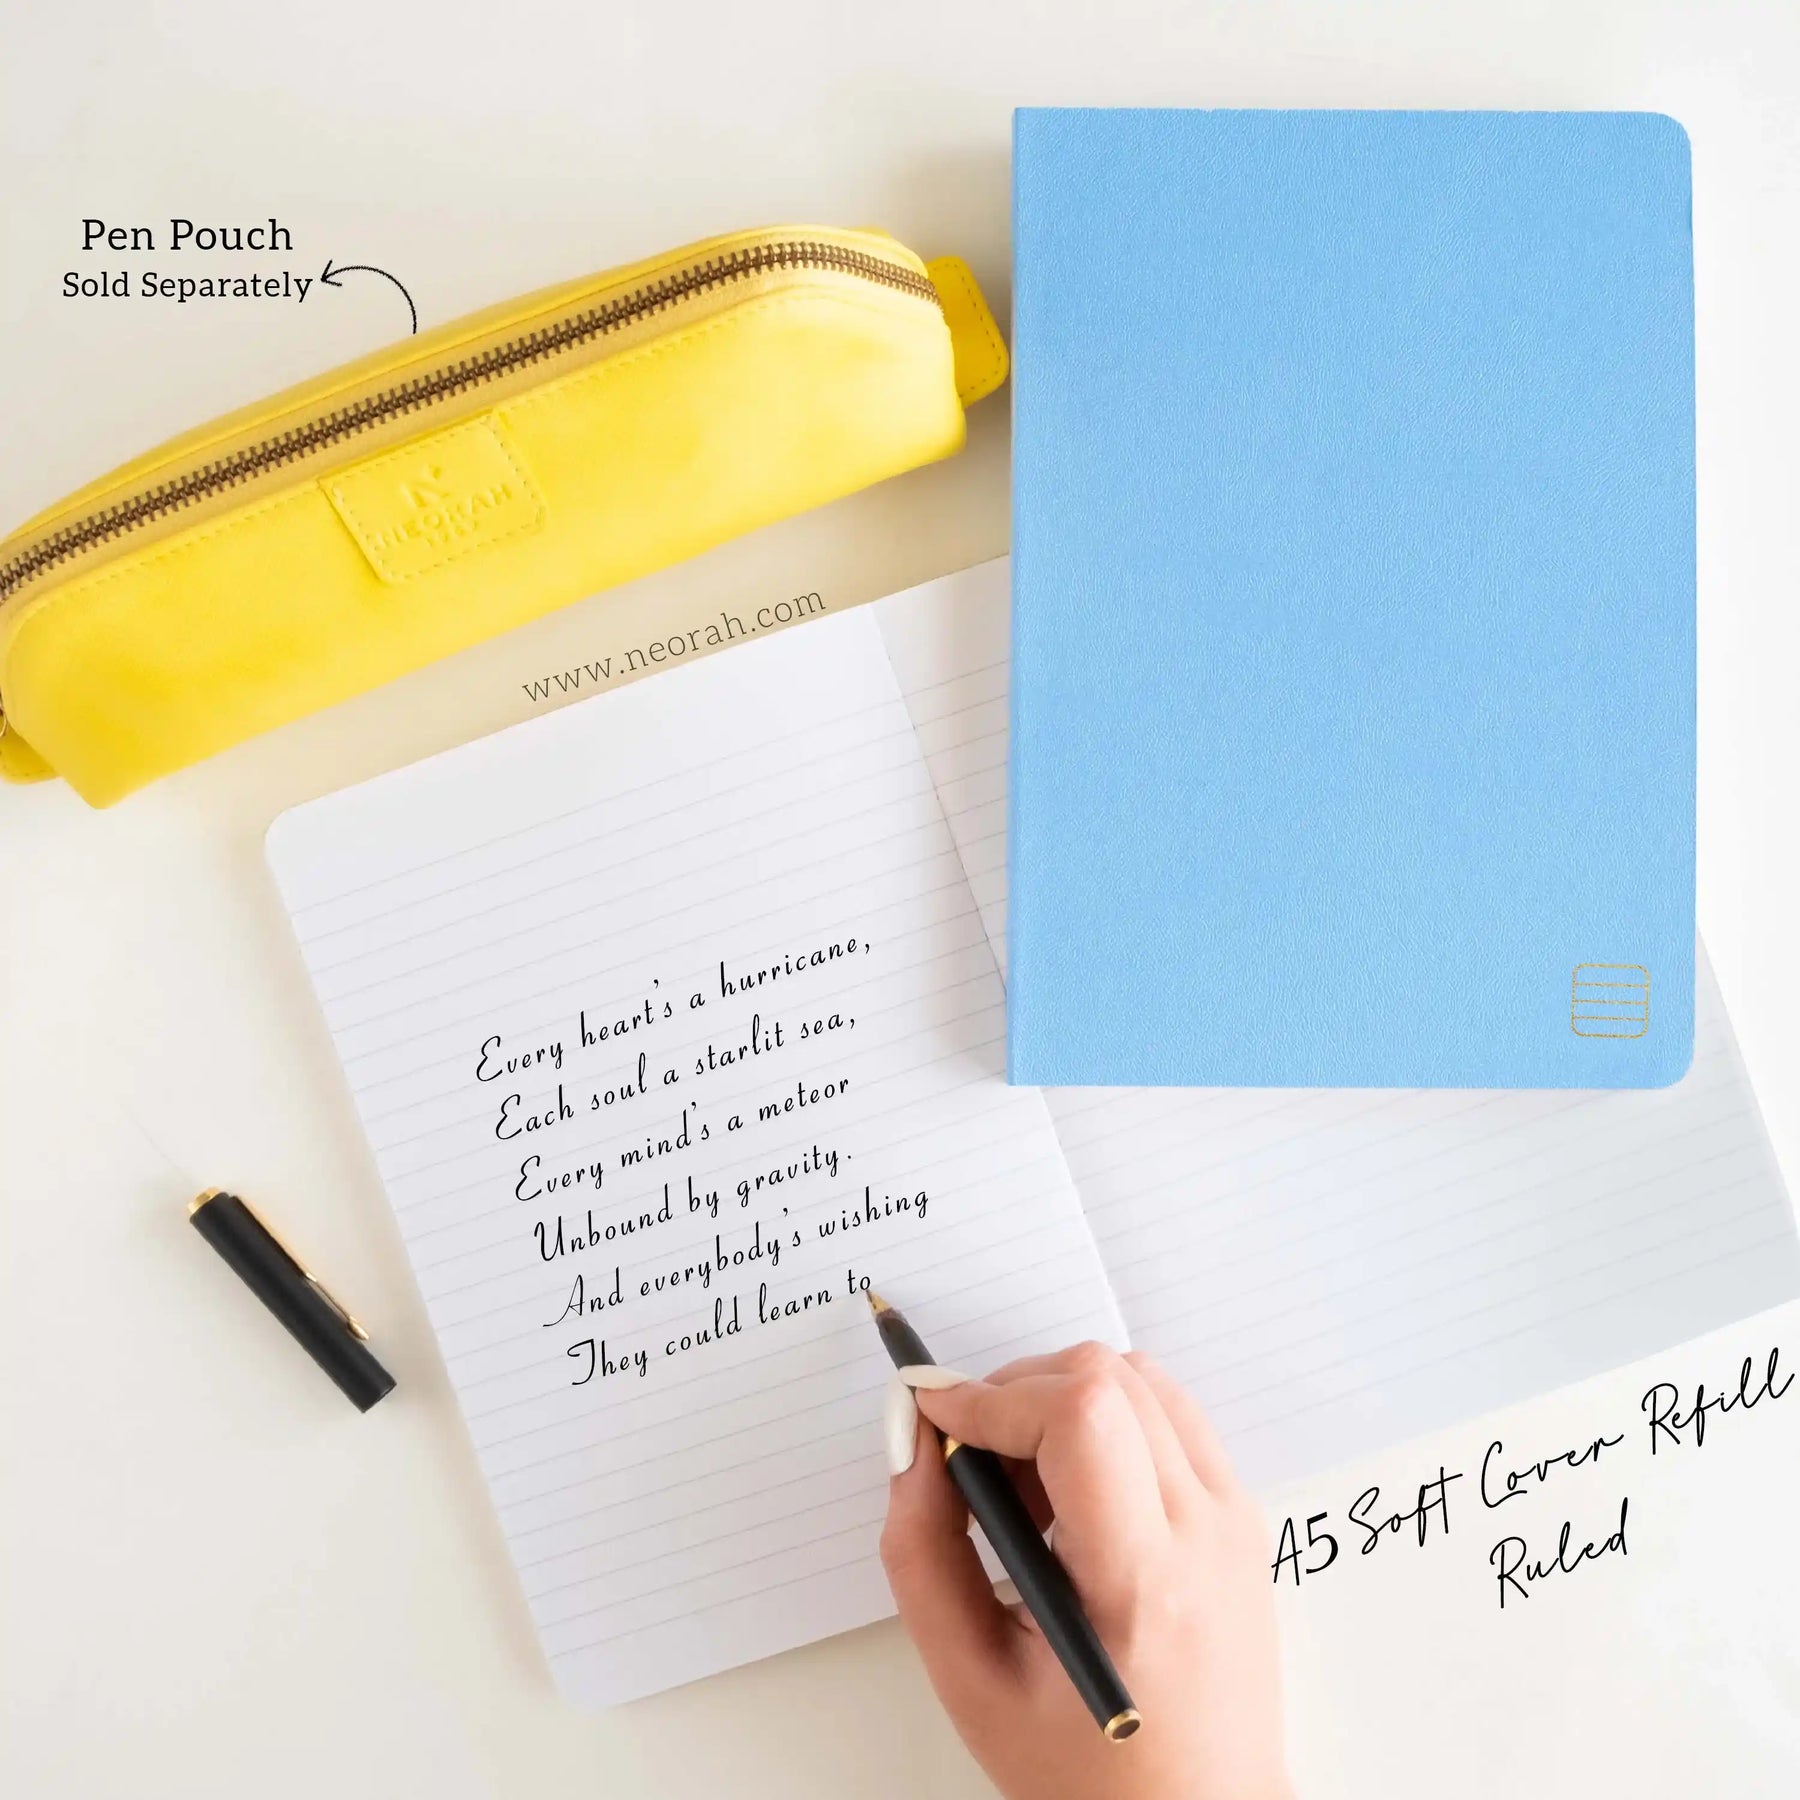 Pen Pouch
Sold Separately
NEORAH
www.neorah.com
Every heart's a hurricane,
Each soul a starlit sea,
Every mind's a meteor
Unbound by gravity.
And everybody's wishing
They could learn to
A5 Soft Cover Refill
Ruled